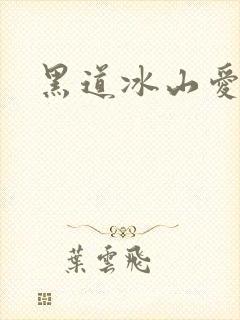 黑道冰山愛
葉雲飛